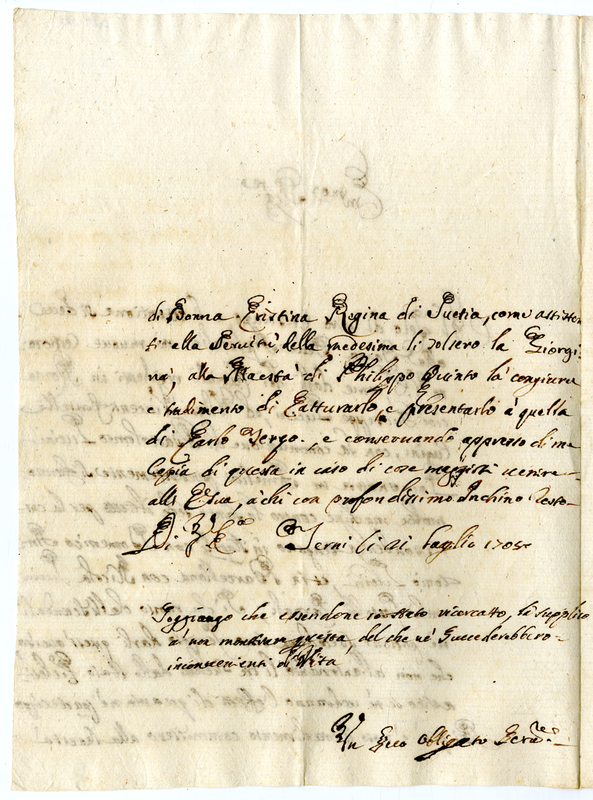 di Donna Cristina Regina di Suetia, come assisten
ti alla Servitù, della medesima li volsero la Giorgi
na, alla Maestà di Philippo Quinto la congiura
e tradimento di Catturarlo, e presentarlo à quella
di Carlo Terzo, e conservando appresso di me
Copia di questa in caso di cose maggiori venire
all' Ecca, à chi con profondissimo Inchino resto
Di V. E. Terni li 21 luglio 1705
Soggiungo che essendone io stato ricercato, la supplico
à non mostrar questa, del che ne succederebbero
inconvenienti di Vita
Un Suo obligato